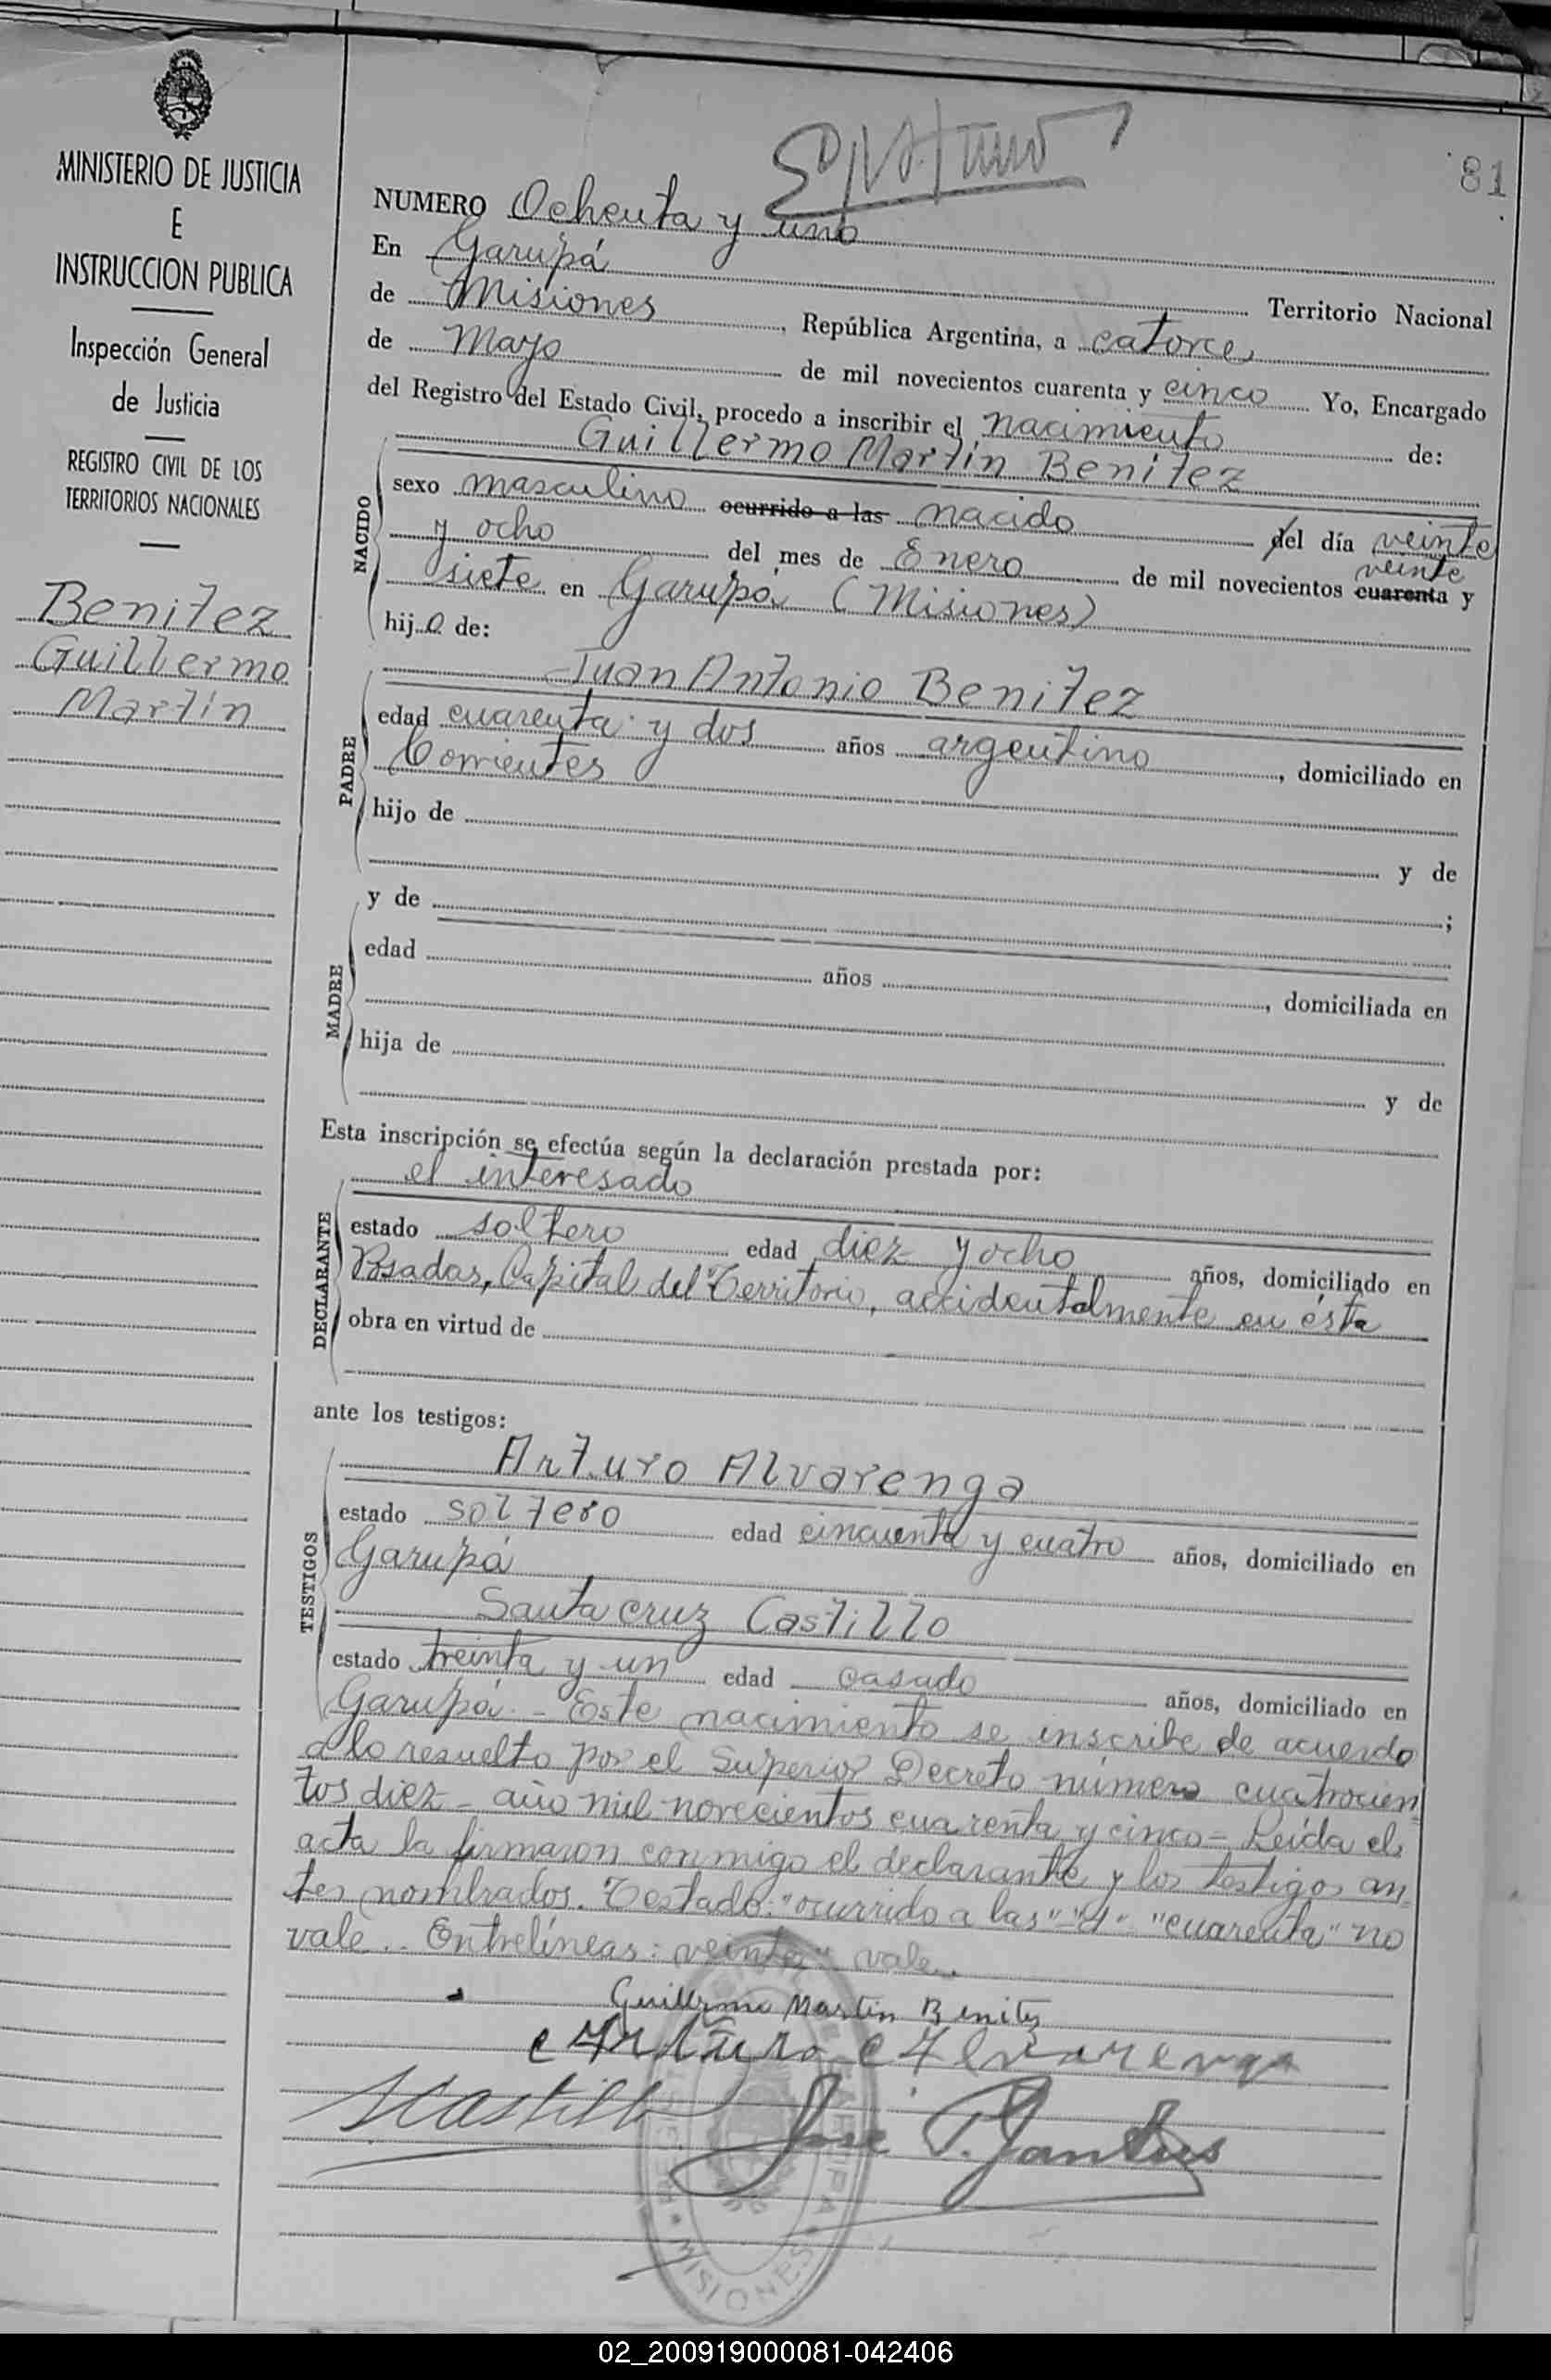 MINISTERIO DE JUSTICIA
E
INSTRUCCION PUBLICA
Inspección General
de Justicia
REGISTRO CIVIL DE LOS
TERRITORIOS NACIONALES
Benitez
Guillermo
Martín
81
NUMERO Ochenta y uno
En Garupá Territorio Nacional
de Misiones, República Argentina, a catorce
de Mayo de mil novecientos cuarenta y cinco Yo, Encargado
del Registro del Estado Civil, procedo a inscribir el nacimiento de:
Guillermo Martín Benitez
NACIDO
sexo masculino ocurrido a las nacido del día veinte
y ocho del mes de Enero de mil novecientos cuarenta veinte y
siete en Garupá (Misiones)
hijo de:
Juan Antonio Benitez
PADRE
edad cuarenta y dos años argentino, domiciliado en
Corrientes
hijo de
y de
y de ;
MADRE
edad años, domiciliada en
hija de
y de
Esta inscripción se efectúa según la declaración prestada por:
el interesado
DECLARANTE
estado soltero edad diez y ocho años, domiciliado en
Posadas, Capital del Territorio, accidentalmente en ésta
obra en virtud de
ante los testigos:
Arturo Alvarenga
TESTIGOS
estado soltero edad cincuenta y cuatro años, domiciliado en
Garupá
Santa cruz Castillo
estado treinta y un edad casado años, domiciliado en
Garupá.- Este nacimiento se inscribe de acuerdo
a lo resuelto por el Superior Decreto número cuatrocien
tos diez - año mil novecientos cuarenta y cinco - Leída el
acta la firmaron conmigo el declarante y los testigos an
tes nombrados. Testado: "ocurrido a las" - "d" - "cuarenta" no
vale.. Entrelíneas: veinte" vale.
Guillermo Martin Benitez
Arturo Alvarenga
S Castillo José P.
GARUPA
MISIONES
02_200919000081-042406